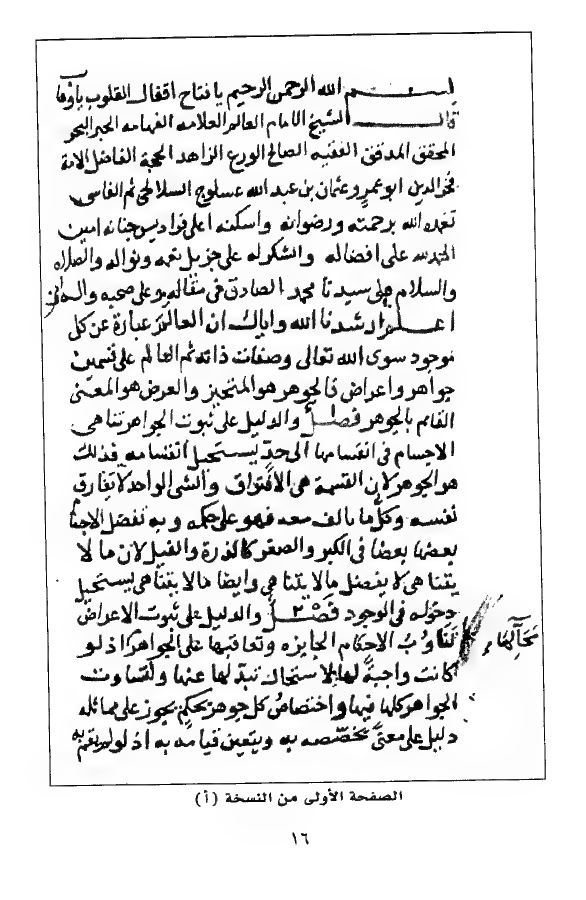 بسم الله الرحمن الرحيم يا فتاح اقفال القلوب يا وهاب
قال الشيخ الامام العالم العلامه الفهامه الحبر البحر
المحقق المدقق الفقيه الصالح الورع الزاهد الحجة الفاضل الامة
فخر الدين ابو عمرو عثمان بن عبد الله عسلوج السلالجي ثم الفاسي
تغمده الله برحمته ورضوانه واسكنه اعلى فراديس جنانه امين
الحمد لله على افضاله والشكر له على جزيل نعمه ونواله والصلاه
والسلام على سيدنا محمد الصادق في مقاله وعلى صحبه واله
اعلم ارشدنا الله واياك ان العالم عبارة عن كل
موجود سوى الله تعالى وصفات ذاته ثم العالم على قسمين
جواهر واعراض فالجوهر هو المتحيز والعرض هو المعنى
القائم بالجوهر فصل والدليل على ثبوت الجواهر تناهي
الاجسام في انقسامها الى حد يستحيل انقسامه فذلك
هو الجوهر لان القسمة هي الافتراق والشي الواحد لا يفارق
نفسه وكلما يالف معه فهو على حكمه وبه تفضل الاجسام
بعضها بعضا في الكبر والصغر كالذرة والفيل لان ما لا
يتناهى لا يفضل ما لا يتناهى وايضا ما لا يتناهى يستحيل
دخوله في الوجود فصل والدليل على ثبوت الاعراض
تناوب الاحكام الجايزه وتعاقبها على الجواهر اذ لو
محالها
كانت واجبة لها لاستحال تبدلها عنها ولتساوت
الجواهر كلها فيها واختصاص كل جوهر بحكم يجوز على مماثله
دليل على معنى يخصصه به ويتعين قيامه به اذ لو لم يقم به
الصفحة الأولى من النسخة (أ)
١٦